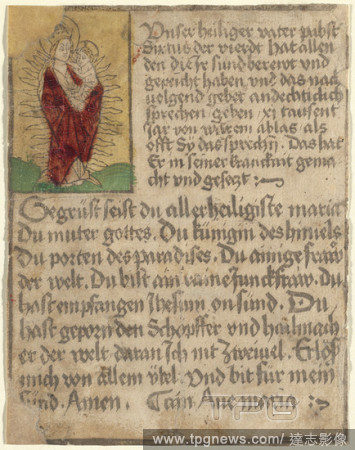 Vnser heiliger vater pabst
Sixtus der vierdt hat allen
den die ir sund berewt vnd
gepeicht haben vnd das nach
uolgend gebet andechticlich
sprechen geben xi tausent
Jar von warem ablas als
offt Sy das sprechn. Das hat
Er in seiner kranckait gema
cht vnd gesetzt :~
Gegrüst seist du aller heiligiste maria
Du muter gottes. Du künigin des himels
Du porten des paradises. Du ainige fraw
der welt. Du bist ain raine Junckfraw. Du
hast empfangen Ihesum on sünd. Du
hast geporn den Schopffer vnd hailmach
er der welt daran Ich nit Zweiuel. Erlös
mich von allem übel. Vnd bit für mein
sünd. Amen. Aue maria :~
TPG
www.tpgnews.com / 達志影像